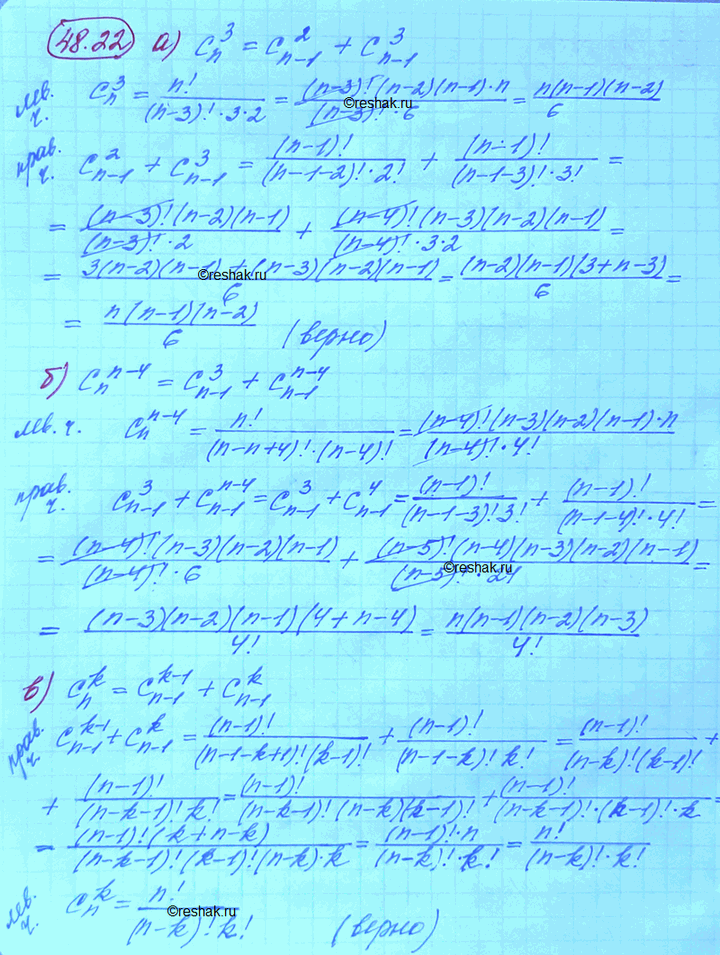 48.22 а) C_n^3 = C_{n-1}^2 + C_{n-1}^3
лев. ч. C_n^3 = n!/((n-3)!·3·2) = ((n-3)!(n-2)(n-1)·n)/((n-3)!·6) = n(n-1)(n-2)/6
©reshak.ru
прав. ч. C_{n-1}^2 + C_{n-1}^3 = (n-1)!/((n-1-2)!·2!) + (n-1)!/((n-1-3)!·3!) =
= ((n-3)!(n-2)(n-1))/((n-3)!·2) + ((n-4)!(n-3)(n-2)(n-1))/((n-4)!·3·2) =
= (3(n-2)(n-1)+(n-3)(n-2)(n-1))/6 = ((n-2)(n-1)(3+n-3))/6 =
©reshak.ru
= n(n-1)(n-2)/6 (верно)
б) C_n^{n-4} = C_{n-1}^3 + C_{n-1}^{n-4}
лев. ч. C_n^{n-4} = n!/((n-n+4)!·(n-4)!) = ((n-4)!(n-3)(n-2)(n-1)·n)/((n-4)!·4!)
прав. ч. C_{n-1}^3 + C_{n-1}^{n-4} = C_{n-1}^3 + C_{n-1}^4 = (n-1)!/((n-1-3)!3!) + (n-1)!/((n-1-4)!·4!) =
= ((n-4)!(n-3)(n-2)(n-1))/((n-4)!·6) + ((n-5)!(n-4)(n-3)(n-2)(n-1))/((n-5)!·24) =
©reshak.ru
= ((n-3)(n-2)(n-1)(4+n-4))/4! = n(n-1)(n-2)(n-3)/4!
в) C_n^k = C_{n-1}^{k-1} + C_{n-1}^k
прав. ч. C_{n-1}^{k-1} + C_{n-1}^k = (n-1)!/((n-1-k+1)!(k-1)!) + (n-1)!/((n-1-k)!k!) = (n-1)!/((n-k)!(k-1)!) +
+ (n-1)!/((n-k-1)!·k!) = (n-1)!/((n-k-1)!(n-k)(k-1)!) + (n-1)!/((n-k-1)!·(k-1)!·k) =
= ((n-1)!(k+n-k))/((n-k-1)!(k-1)!(n-k)·k) = ((n-1)!·n)/((n-k)!·k!) = n!/((n-k)!·k!)
лев. ч. C_n^k = n!/((n-k)!k!) (верно)
©reshak.ru